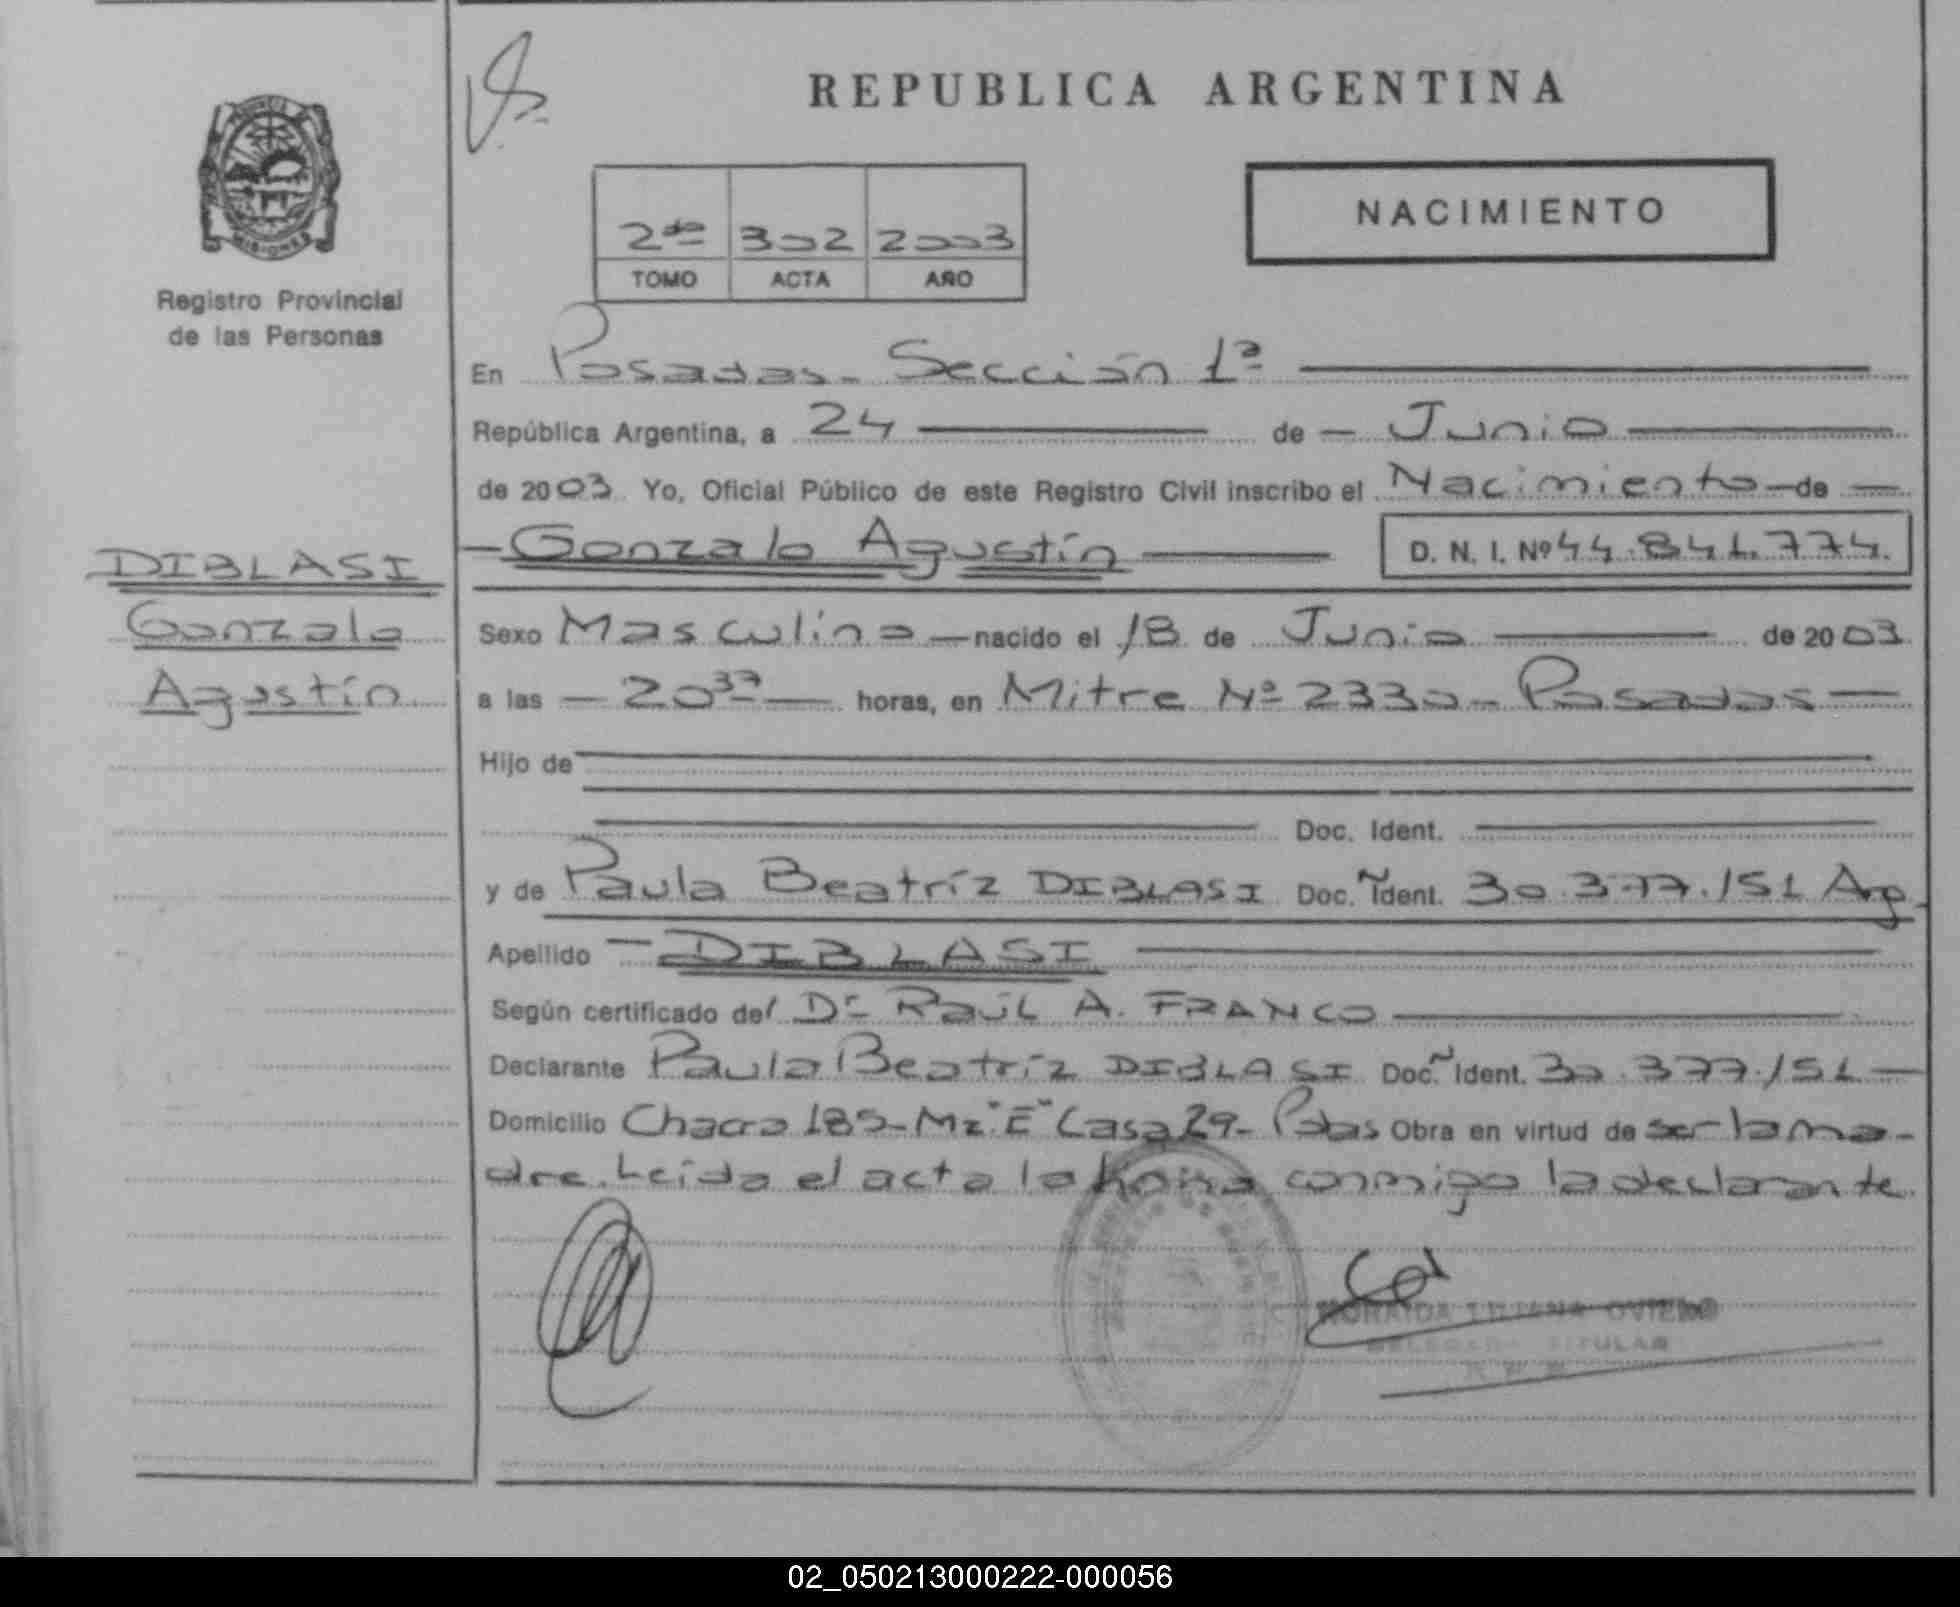 REPUBLICA ARGENTINA
NACIMIENTO
2do 302 2003
TOMO ACTA AÑO
MISIONES
Registro Provincial
de las Personas
En Posadas - Sección 1ª
República Argentina, a 24 de Junio
de 2003 Yo, Oficial Público de este Registro Civil inscribo el Nacimiento de
Gonzalo Agustín D. N. I. Nº 44.841.774.
DIBLASI
Gonzalo
Agustín
Sexo Masculino nacido el 18 de Junio de 2003
a las 20 37 horas, en Mitre Nº 2330 - Posadas
Hijo de
Doc. Ident.
y de Paula Beatríz DIBLASI Doc. Ident. 30.377.151 Arg.
Apellido DIBLASI
Según certificado del Dr Raúl A. FRANCO
Declarante Paula Beatríz DIBLASI Doc. Ident. 30.377.151
Domicilio Chacra 185 - Mz "E" Casa 29 - Pdas Obra en virtud de ser la ma-
dre. Leída el acta la firma conmigo la declarante.
LILIANA OVIEDO
DELEGADA TITULAR
02_050213000222-000056